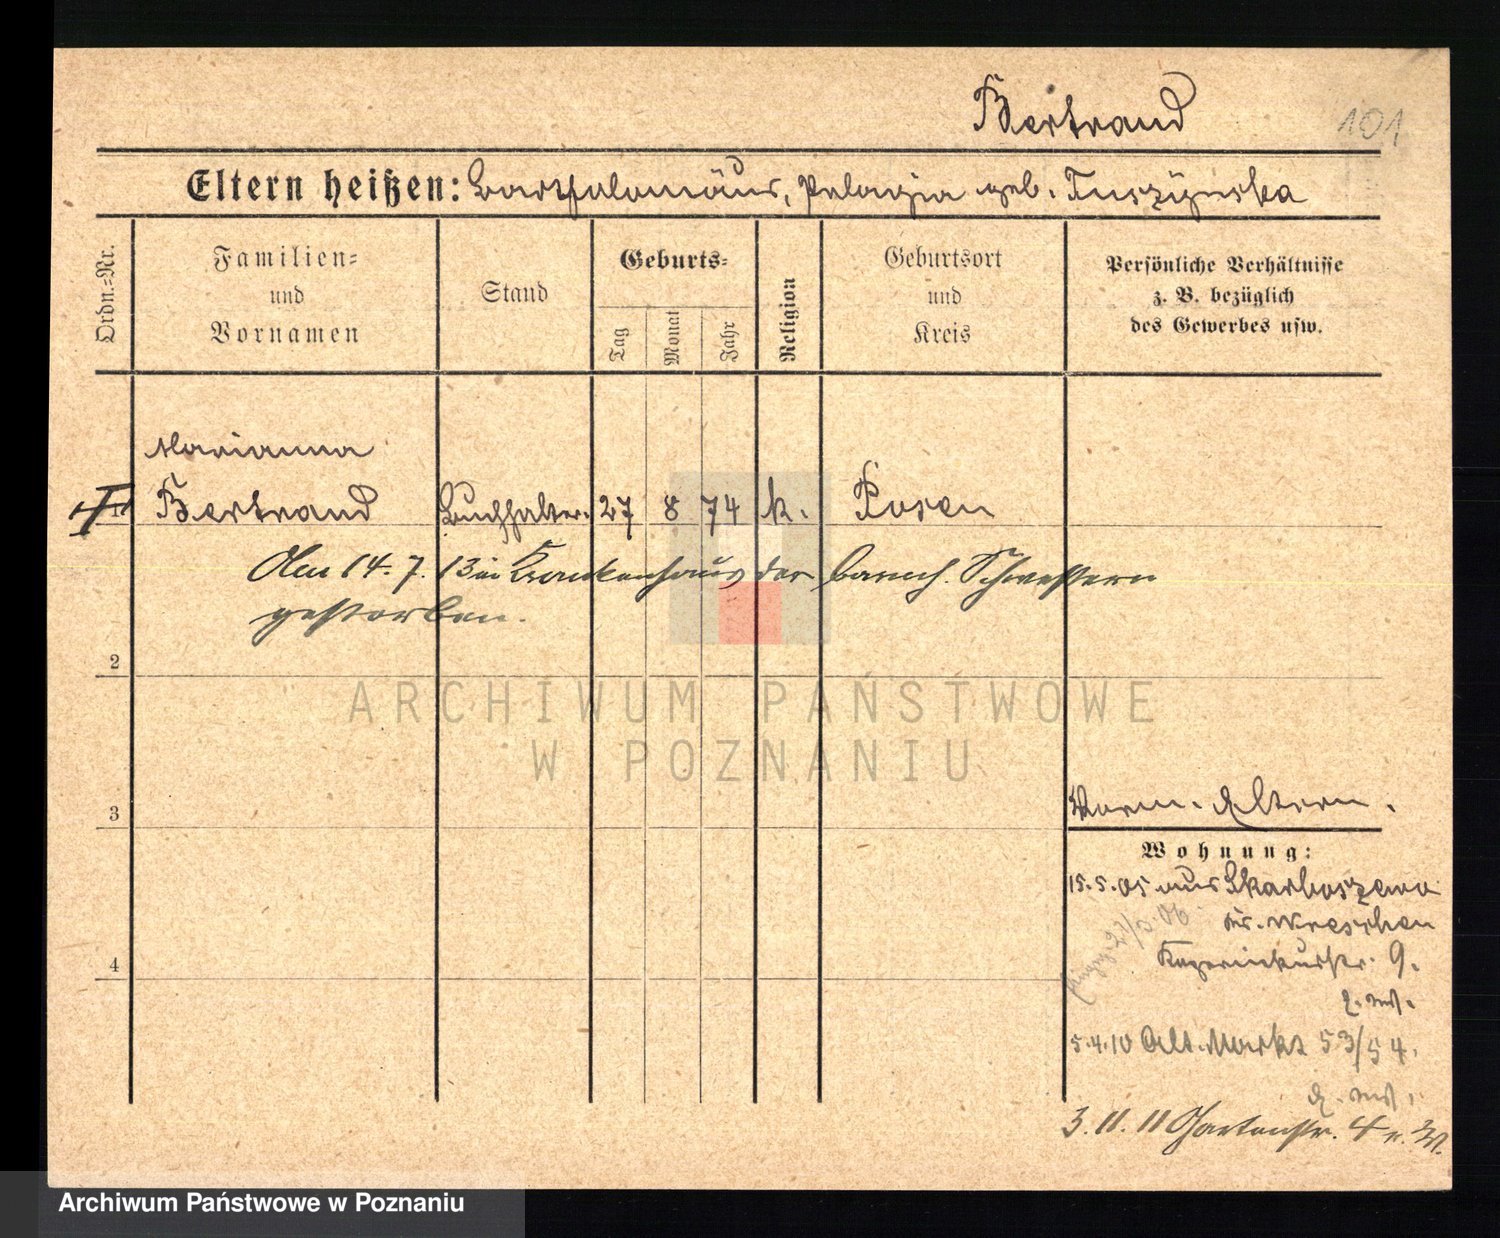 Bertrand
101
Eltern heißen: Bartholomäus, Pelagia geb. Tuszynska
Ordn.-Nr.
Familien-
und
Vornamen
Stand
Geburts-
Tag
Monat
Jahr
Religion
Geburtsort
und
Kreis
Persönliche Verhältnisse
z. B. bezüglich
des Gewerbes usw.
Marianna
1 Bertrand Buchhalter. 27 8 74 k. Posen
Am 14. 7. 13 im Krankenhaus der barmh. Schwestern
gestorben.
2
ARCHIWUM PAŃSTWOWE
W POZNANIU
3
Verm. Eltern.
Wohnung:
15.5.05 aus Skarboszewo
Kr. Wreschen
4
9.
5.4.10 Alt. Markt 53/54.
3. 11. 11 Gartenstr. 4
Archiwum Państwowe w Poznaniu